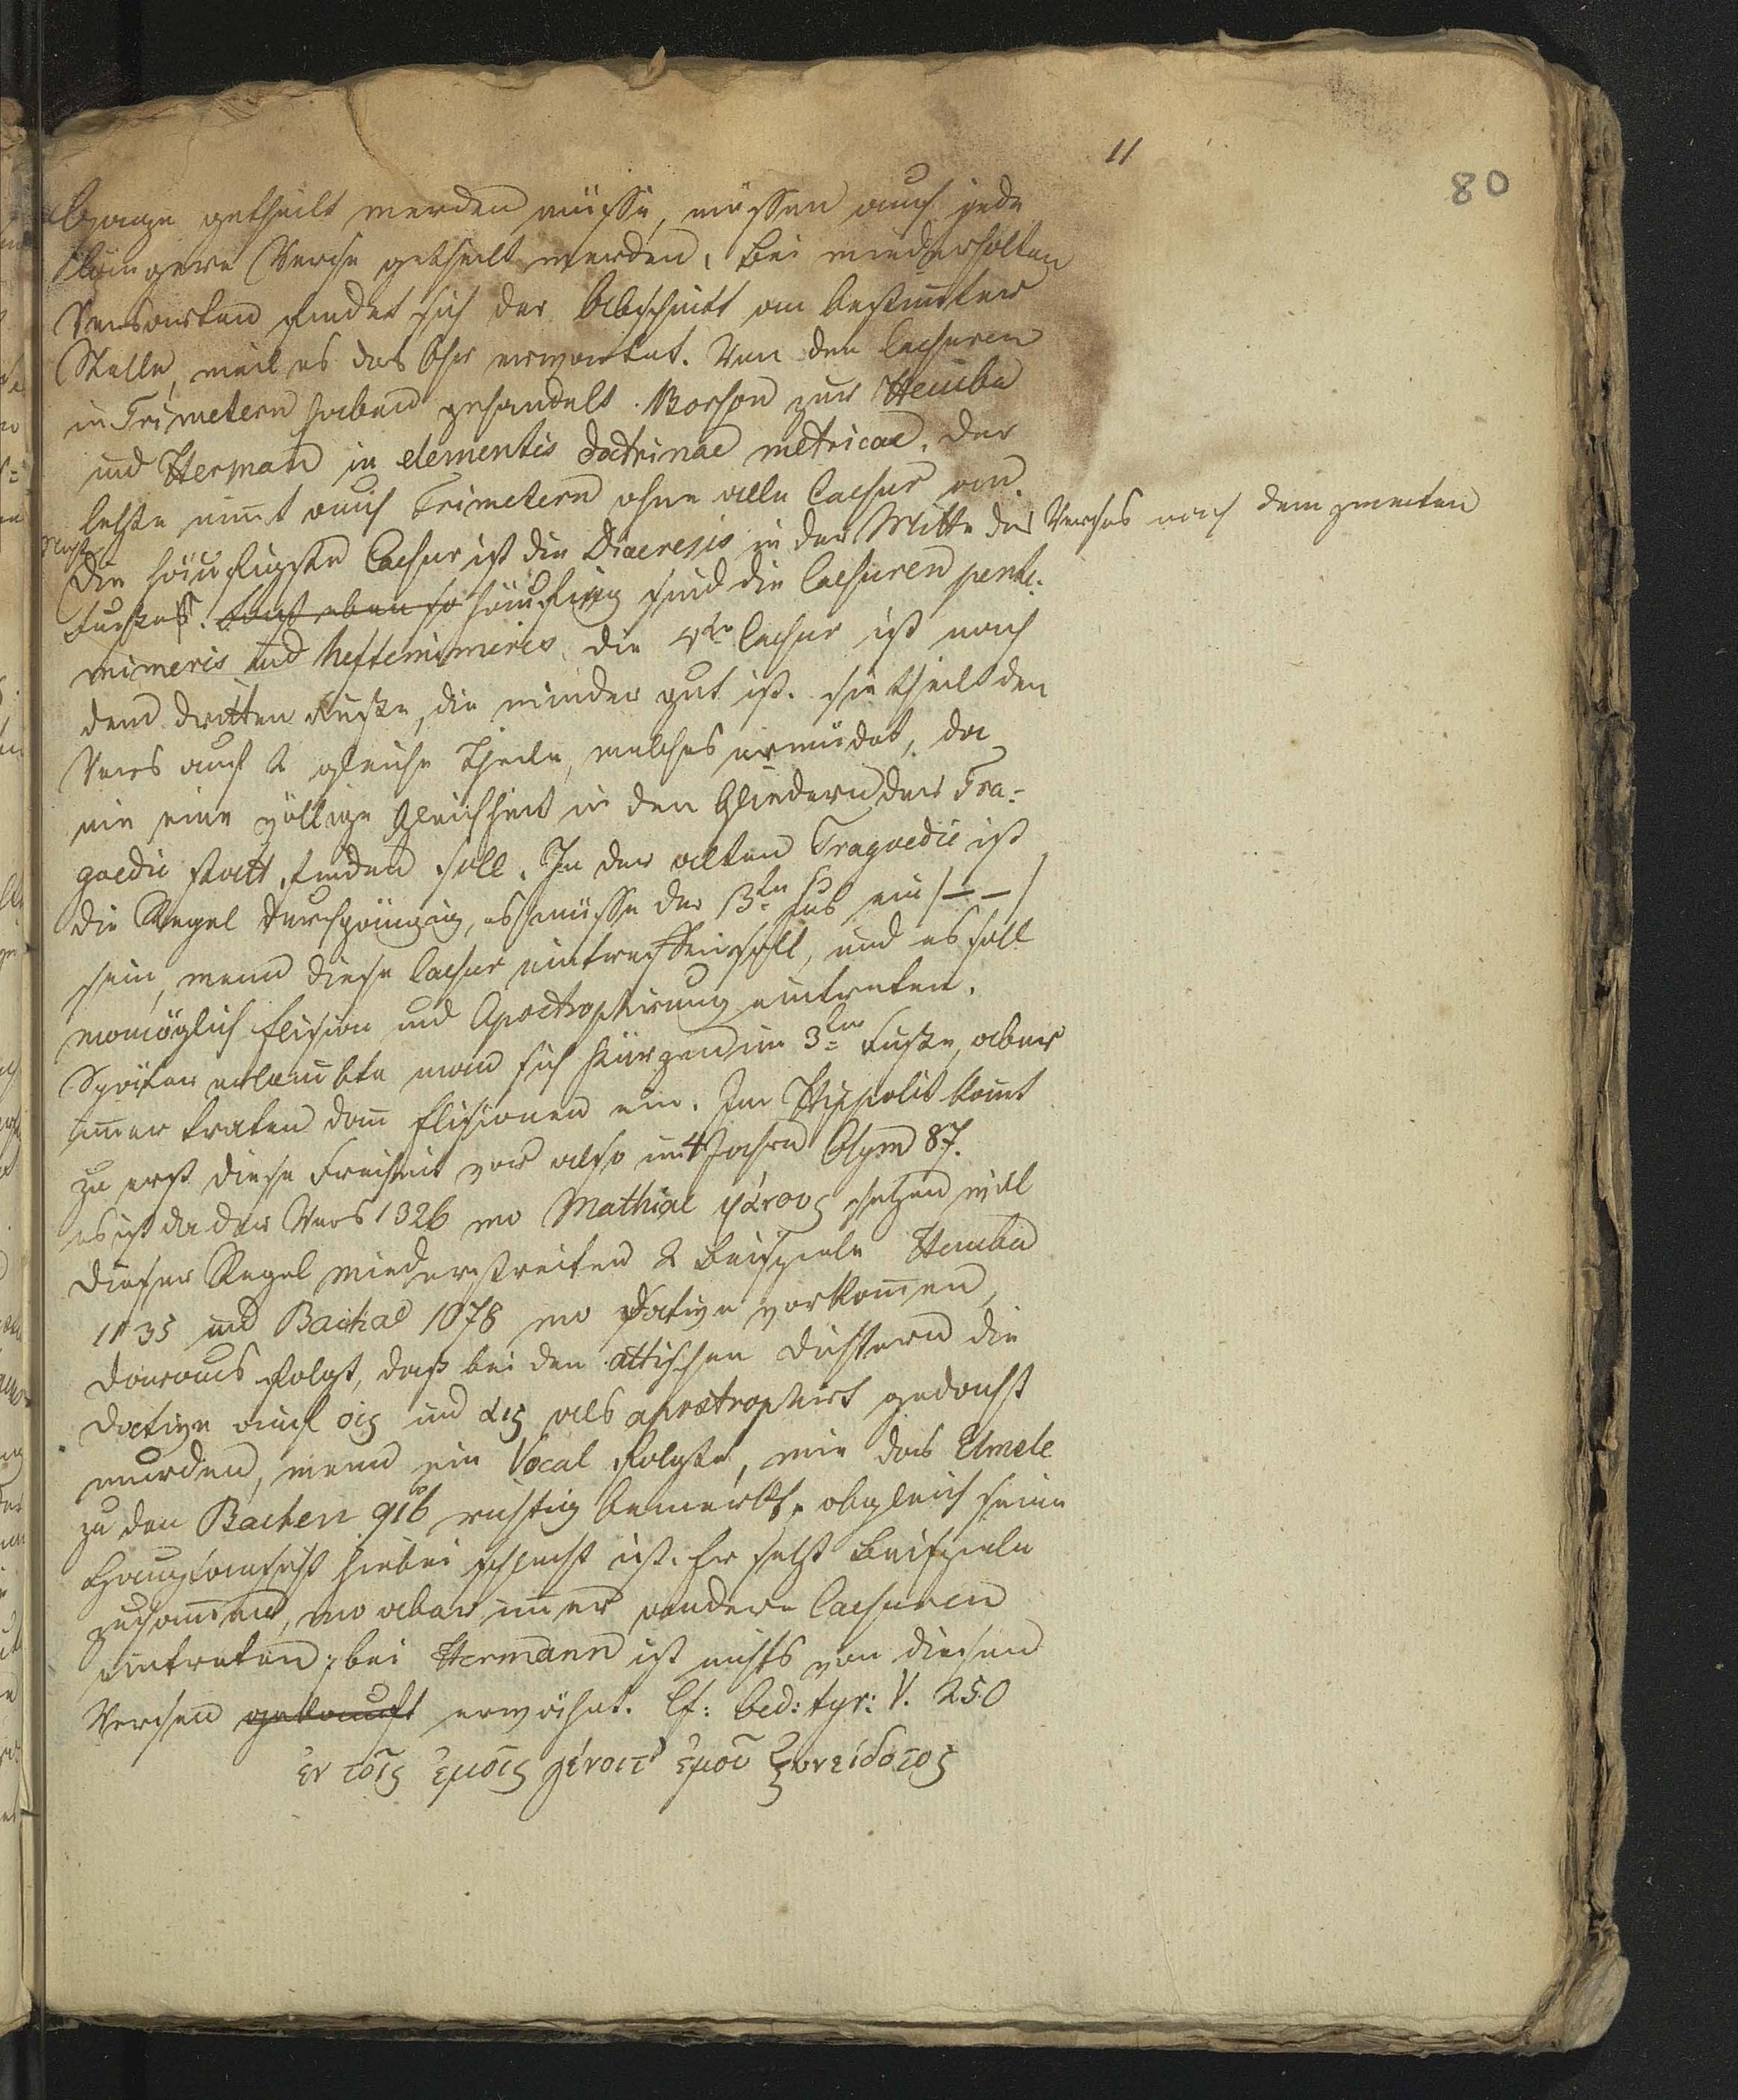 11
80
lange getheilt werden müsse, müssen auch jede
längere Verse getheilt werden, bei wiederholten
Versarten findet sich der Abschnitt an bestim̄ter
Stelle, weil es das Ohr erwartet. Von den Caesuren
in Trimetern haben gehandelt Porson zur Hecuba
und Herman in elementis doctrinae metricae. der
letzte nim̄t auch Trimetern ohne alle Caesur an.
Die häufigste Caesur ist die Diaeresis in der Mitte des Verses nach dem zweiten
Fusse. sonst eben so häufig sind die Caesuren pente-
mimeris und heftemimeris. die 4te Caesur ist nach
dem dritten Fuße, die minder gut ist. sie theilt den
Vers auf 2 gleiche Theile, welches ermüdet, da
nie eine völlige Gleichheit in den Gliedern der Tra-
goedie statt finden soll. In der alten Tragoedie ist
die Regel durchgängig, es müsse der 3te Fus ein /– –/
sein, wenn diese Caesur eintreffen soll, und es soll
womöglich Elision und Apostrophirung eintreten.
Später erlaubte man sich Kürzen im 3ten Fuße, aber
im̄er traten dan̄ Elisionen ein. Im Hippolit kom̄t
zu erst diese Freiheit vor also im 4 Jahre Olym 87.
es ist da der Vers 1326 wo Mathiae setzen will
dieser Regel wiederstreiten 2 Beispiele Hecuba
1135 und Bachae 1078 wo Dative vorkom̄en,
daraus folgt, daß bei den attischen Dichtern die
Dative auf οις und αις als apostrophirt gedacht
wurden, wenn ein Vocal folgte, wie das Elmsle
zu den Bachen 916 richtig bemerkt, obgleich seine
Hauptansicht hiebei schlecht ist. Er setzt Beispiele
zusam̄en, wo aber im̄er andere Caesuren
eintreten; bei Hermann ist nichts von diesen
Versen erwähnt. Cf: Oed: tyr: V. 250
ἐν τοῖς ἐμοῖς γένοιτ' ἐμοῦ ξυνειδότος